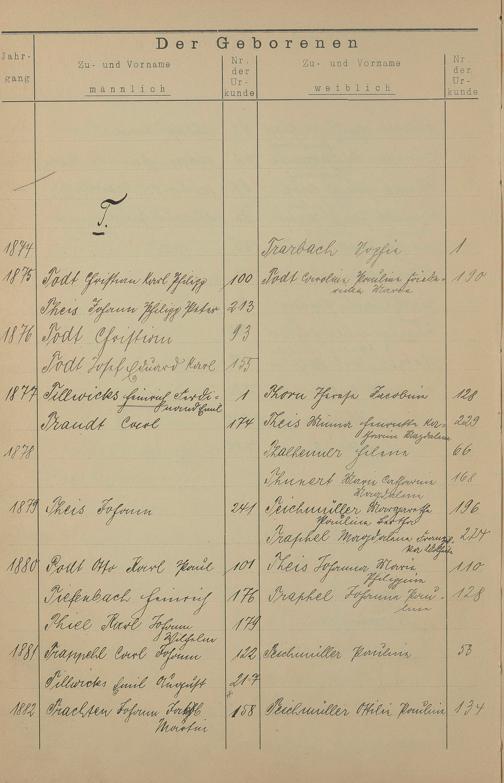 Der Geborenen
Jahr-
gang
Zu- und Vorname
männlich
Nr.
der
Ur-
kunde
Zu- und Vorname
weiblich
Nr.
der
Ur-
kunde
T.
1874 Trarbach Sophie 1
1875 Todt Christian Karl Philipp 100 Todt Caroline Pauline Friede-
ricke Maria 190
Theis Johann Philipp Peter 213
1876 Todt Christian 93
Todt Josef Eduard Karl 155
1877 Tillwicks Heinrich Ferdi-
nand Emil 1 Thorn Therese Jacobine 128
Traudt Carl 174 Theis Minna Henriette Ka-
tharina Magdalena 229
1878 Helene 66
Thunert Maria Catharina
Magdalena 168
1879 Theis Johann 241 Teichmüller Margaretha
Pauline Bertha 196
Traphel Magdalena 224
1880 Todt Otto Karl Paul 101 Theis Johanna Maria
Philippine 110
Tiefenbach Heinrich 176 Traphel Johanna Pau-
line 128
Thiel Karl Johann
Wilhelm 179
1881 Trappehl Carl Johann 122 Teichmüller Pauline 53
Tillwicks Emil August 217
1882 Trachten Johann
Martin 158 Teichmüller Ottilie Pauline 134